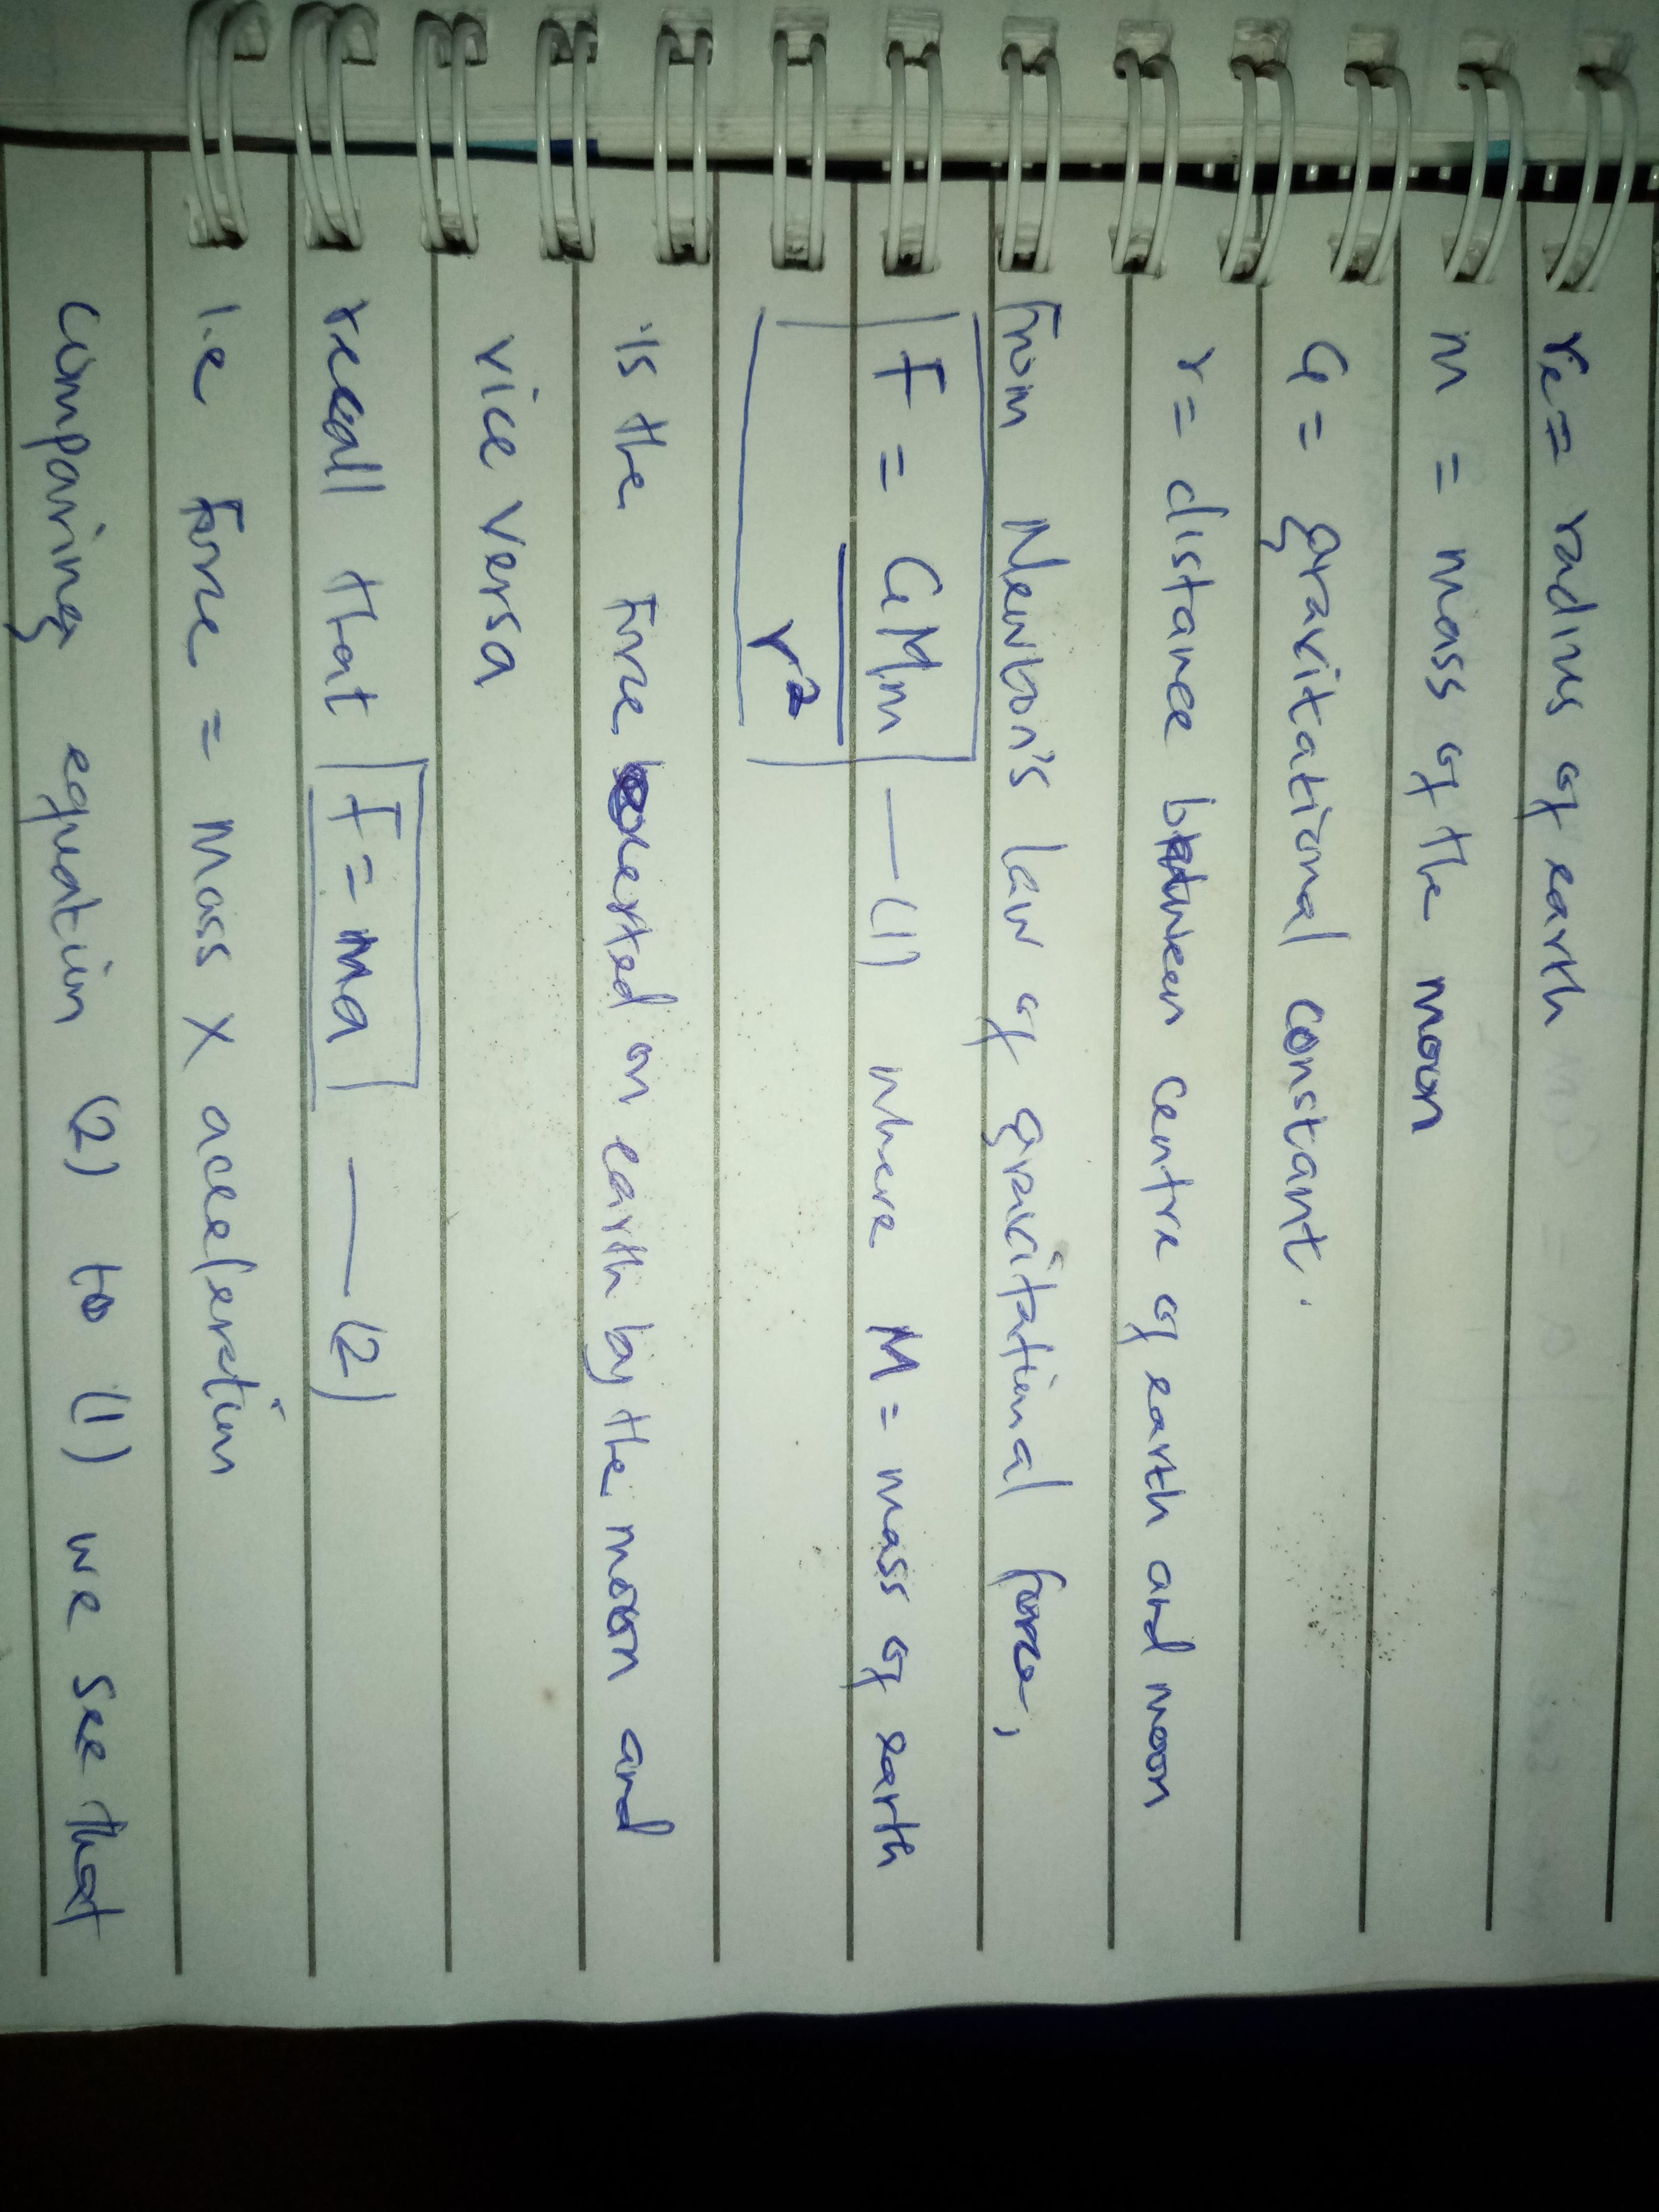 re = radius of earth
m = mass of the moon
G = gravitational constant.
r = distance between centre of earth and moon
From Newton's law of gravitational force,
F = GMm —(1) where M = mass of earth
r²
is the force exerted on earth by the moon and
vice versa
recall that F = ma —(2)
i.e Force = mass x acceleration
Comparing equation (2) to (1) we see that